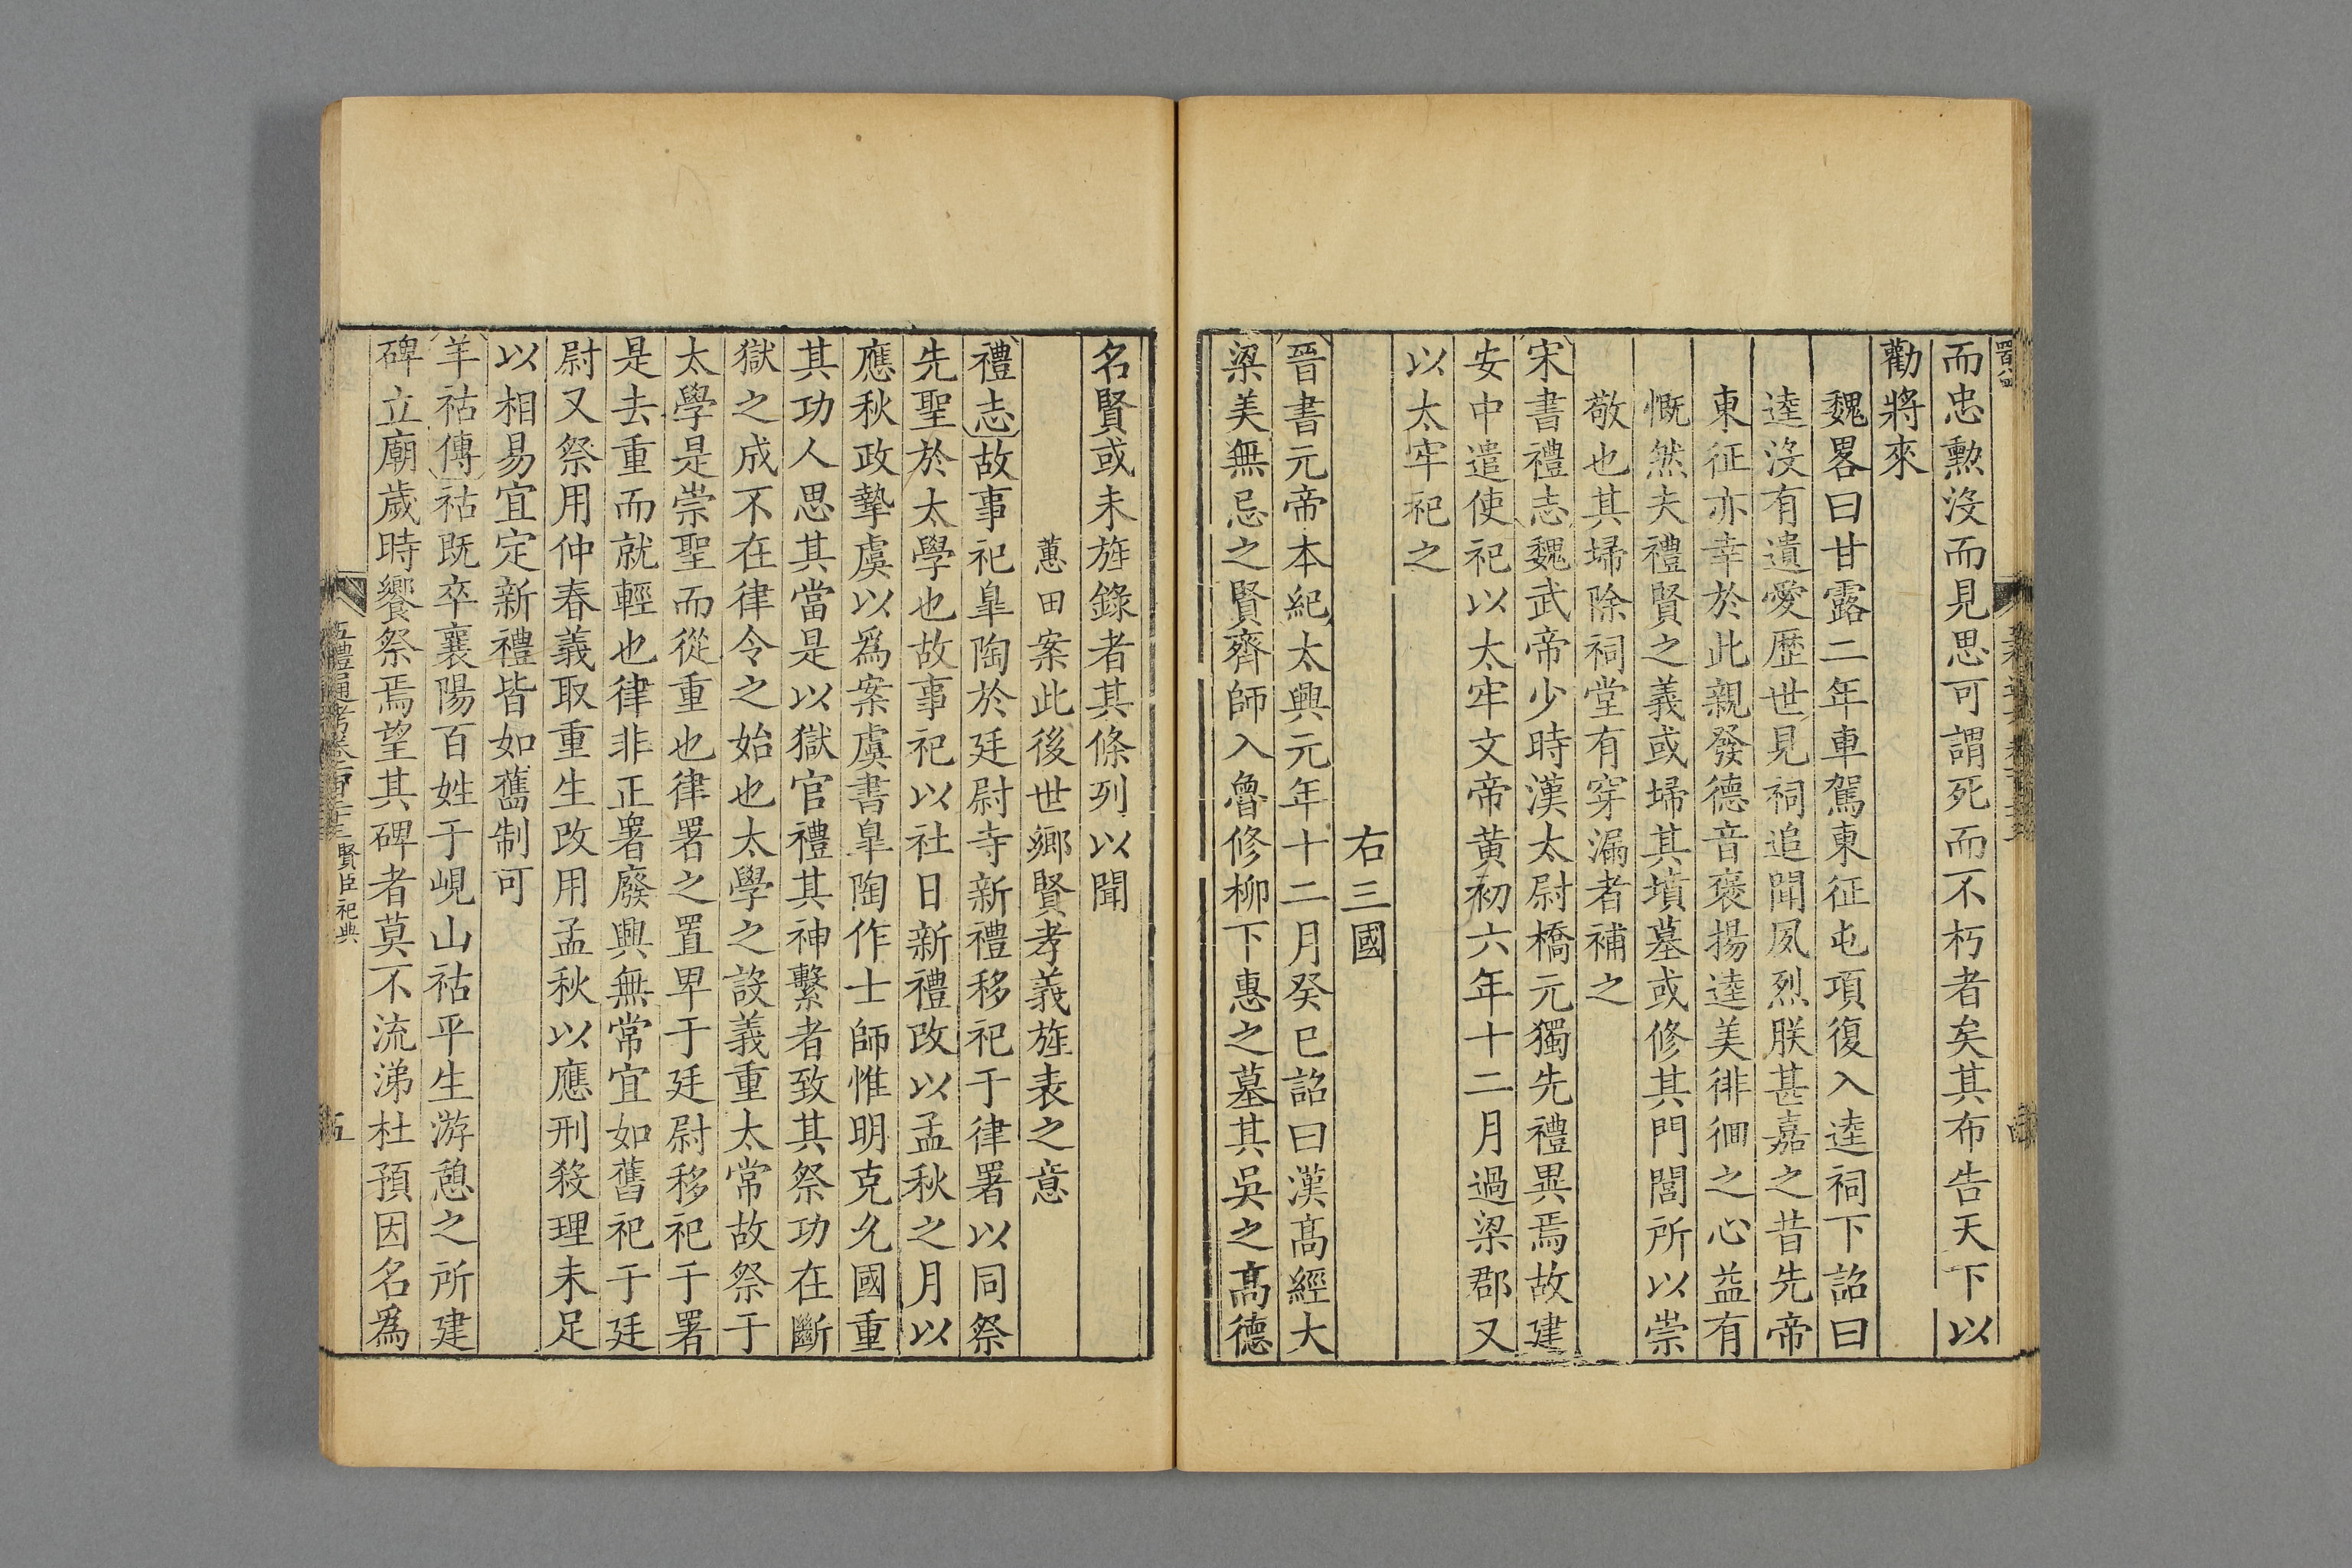 而忠勲沒而見思可謂死而不朽者矣其布告天下以
勸將來
魏畧曰甘露二年車駕東征屯項復入逵祠下詔曰
逵沒有遺愛歴世見祠追聞夙烈朕甚嘉之昔先帝
東征亦幸於此親發德音褒揚逵美徘徊之心益有
慨然夫禮賢之義或埽其墳墓或修其門閭所以崇
敬也其埽除祠堂有穿漏者補之
宋書禮志魏武帝少時漢太尉橋元獨先禮異焉故建
安中遣使祀以太牢文帝黄初六年十二月過梁郡又
以太牢祀之
右三國
晉書元帝本紀太興元年十二月癸巳詔曰漢髙經大
梁美無忌之賢齊師入魯修柳下惠之墓其吳之髙德
名賢或未旌錄者其條列以聞
蕙田案此後世鄉賢孝義旌表之意
禮志故事祀臯陶於廷尉寺新禮移祀于律署以同祭
先聖於太學也故事祀以社日新禮改以孟秋之月以
應秋政摯虞以爲案虞書臯陶作士師惟明克允國重
其功人思其當是以獄官禮其神繫者致其祭功在斷
獄之成不在律令之始也太學之設義重太常故祭于
太學是崇聖而從重也律署之置卑于廷尉移祀于署
是去重而就輕也律非正署廢興無常宜如舊祀于廷
尉又祭用仲春義取重生改用孟秋以應刑殺理未足
以相易宜定新禮皆如舊制可
羊祜傳祜既卒襄陽百姓于峴山祜平生游憩之所建
碑立廟歲時饗祭焉望其碑者莫不流涕杜預因名爲
五禮通考卷一百二十三 賢臣祀典
五